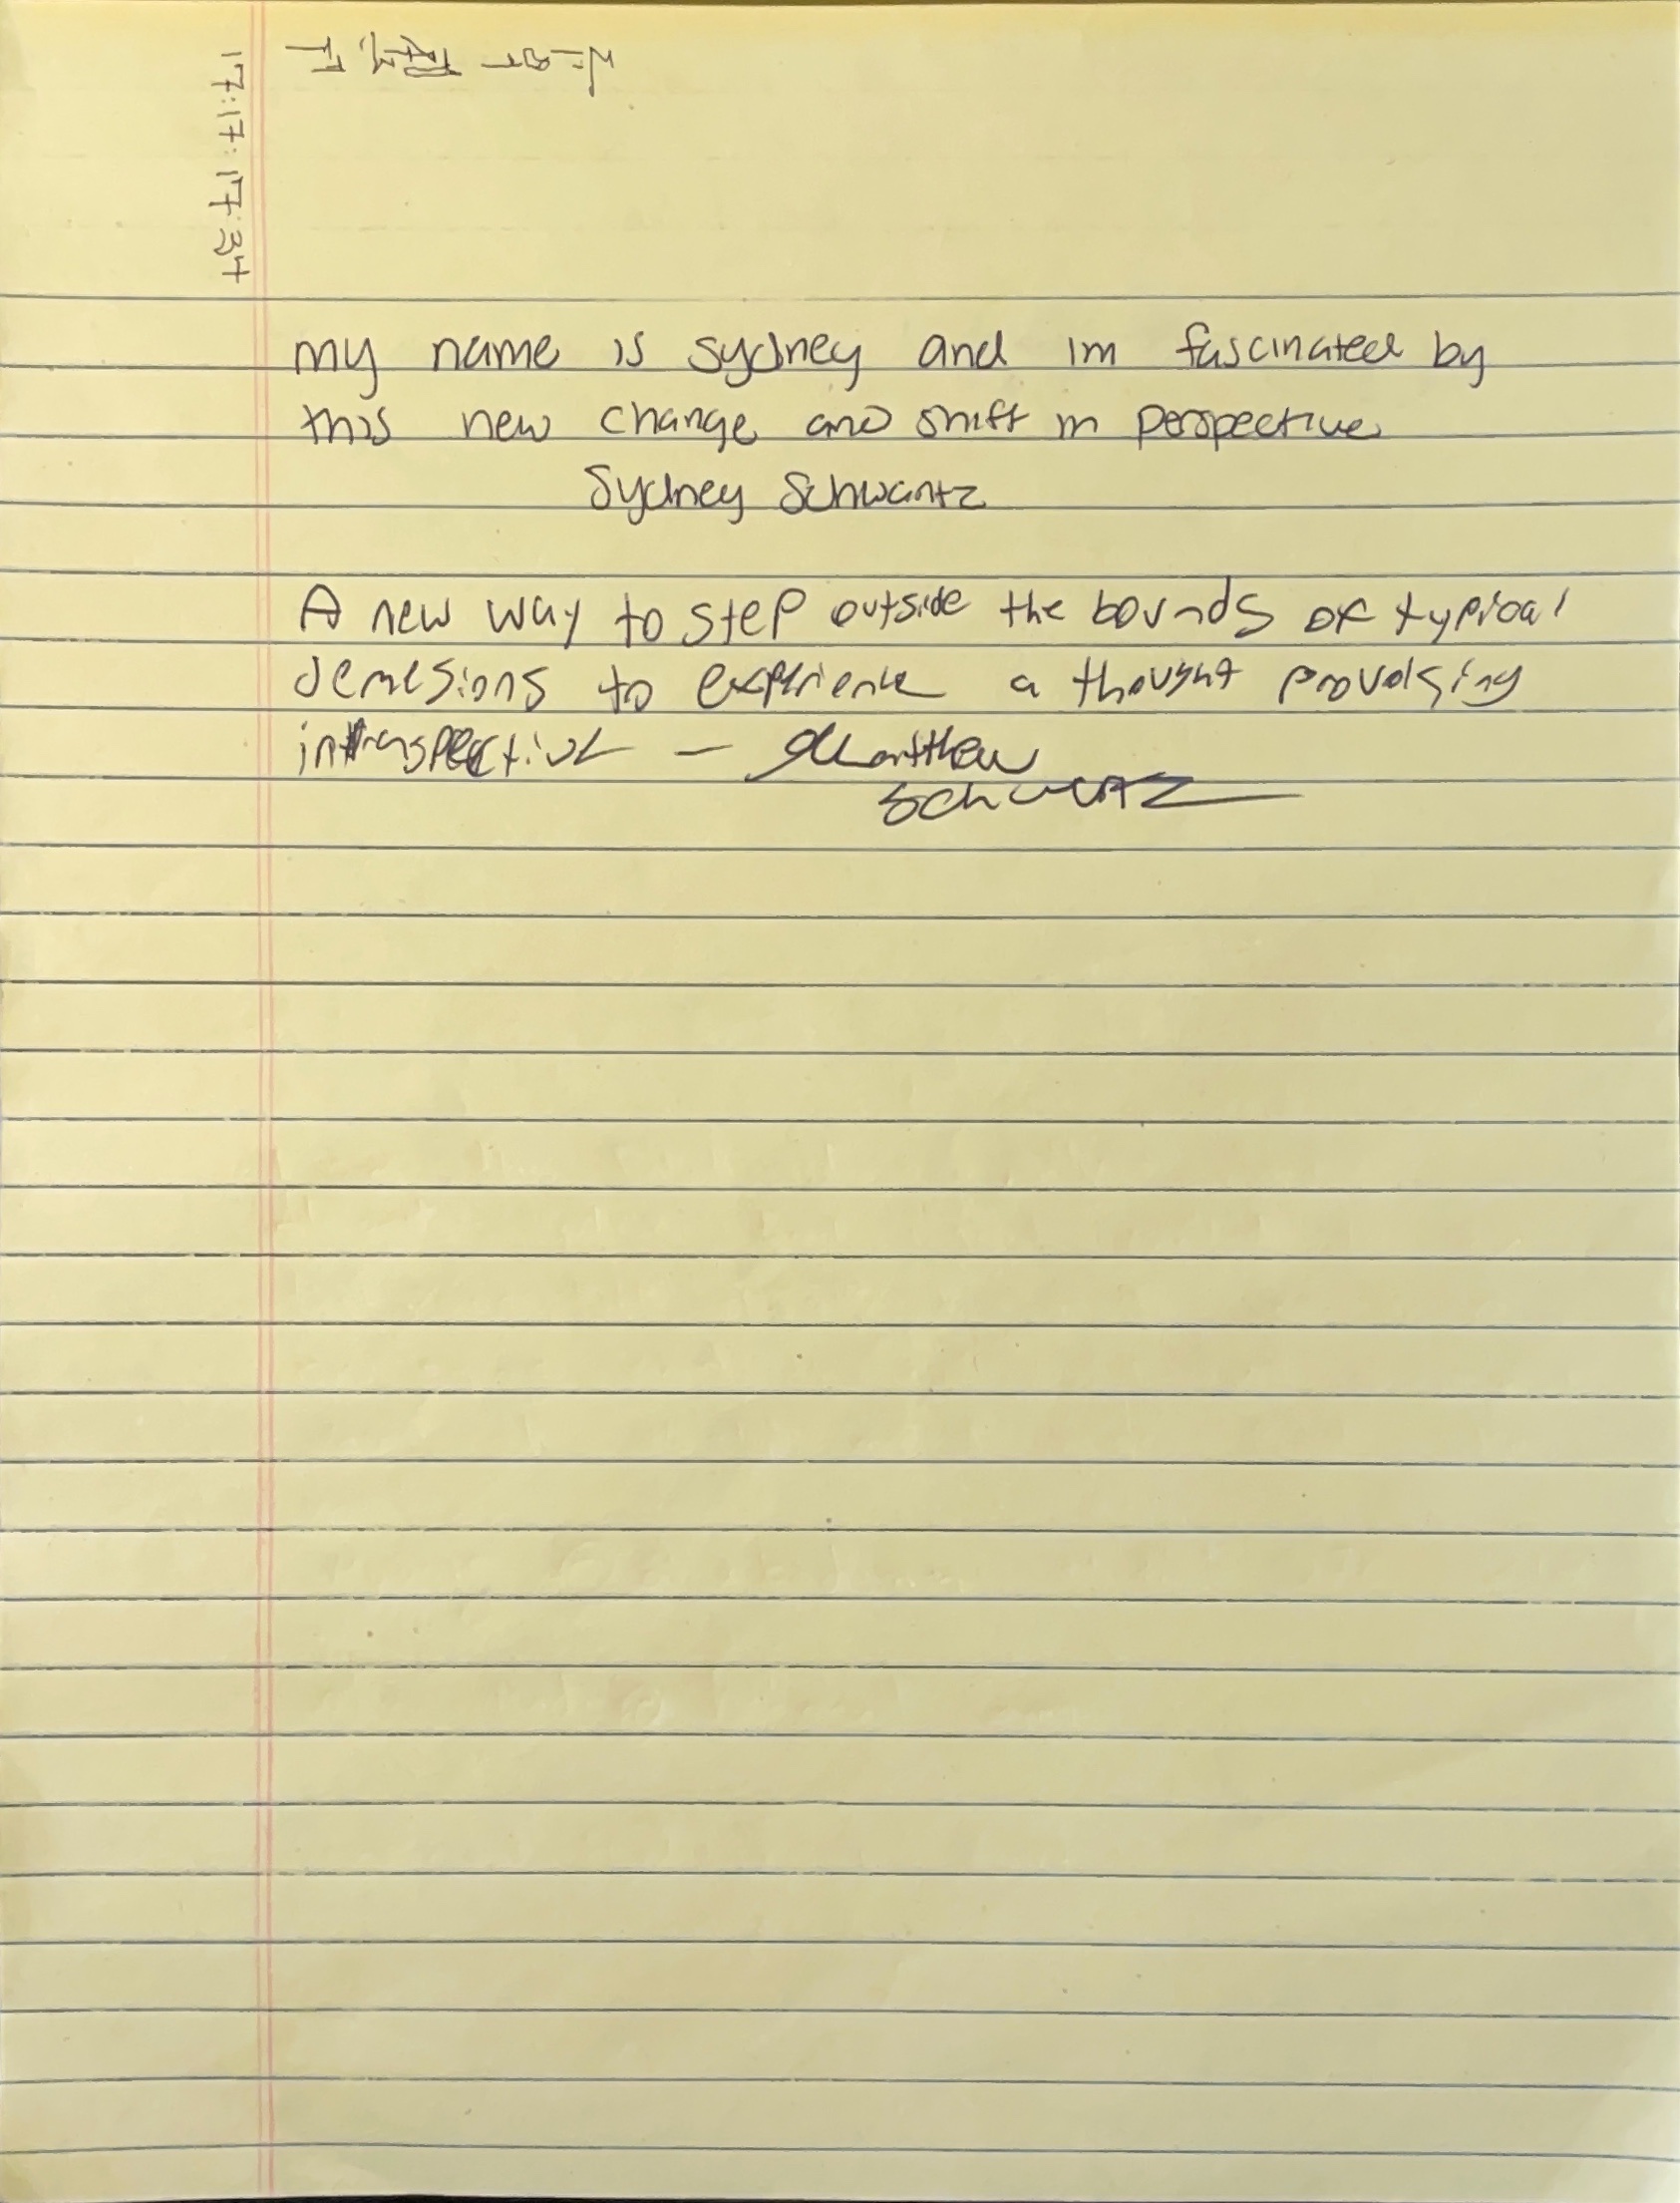 17:17:17:34
my name is sydney and im fascinated by
this new change and shift in perspective
Sydney Schwartz
A new way to step outside the bounds of typical
demesions to experience a thought provoking
– Matthew
Schwartz